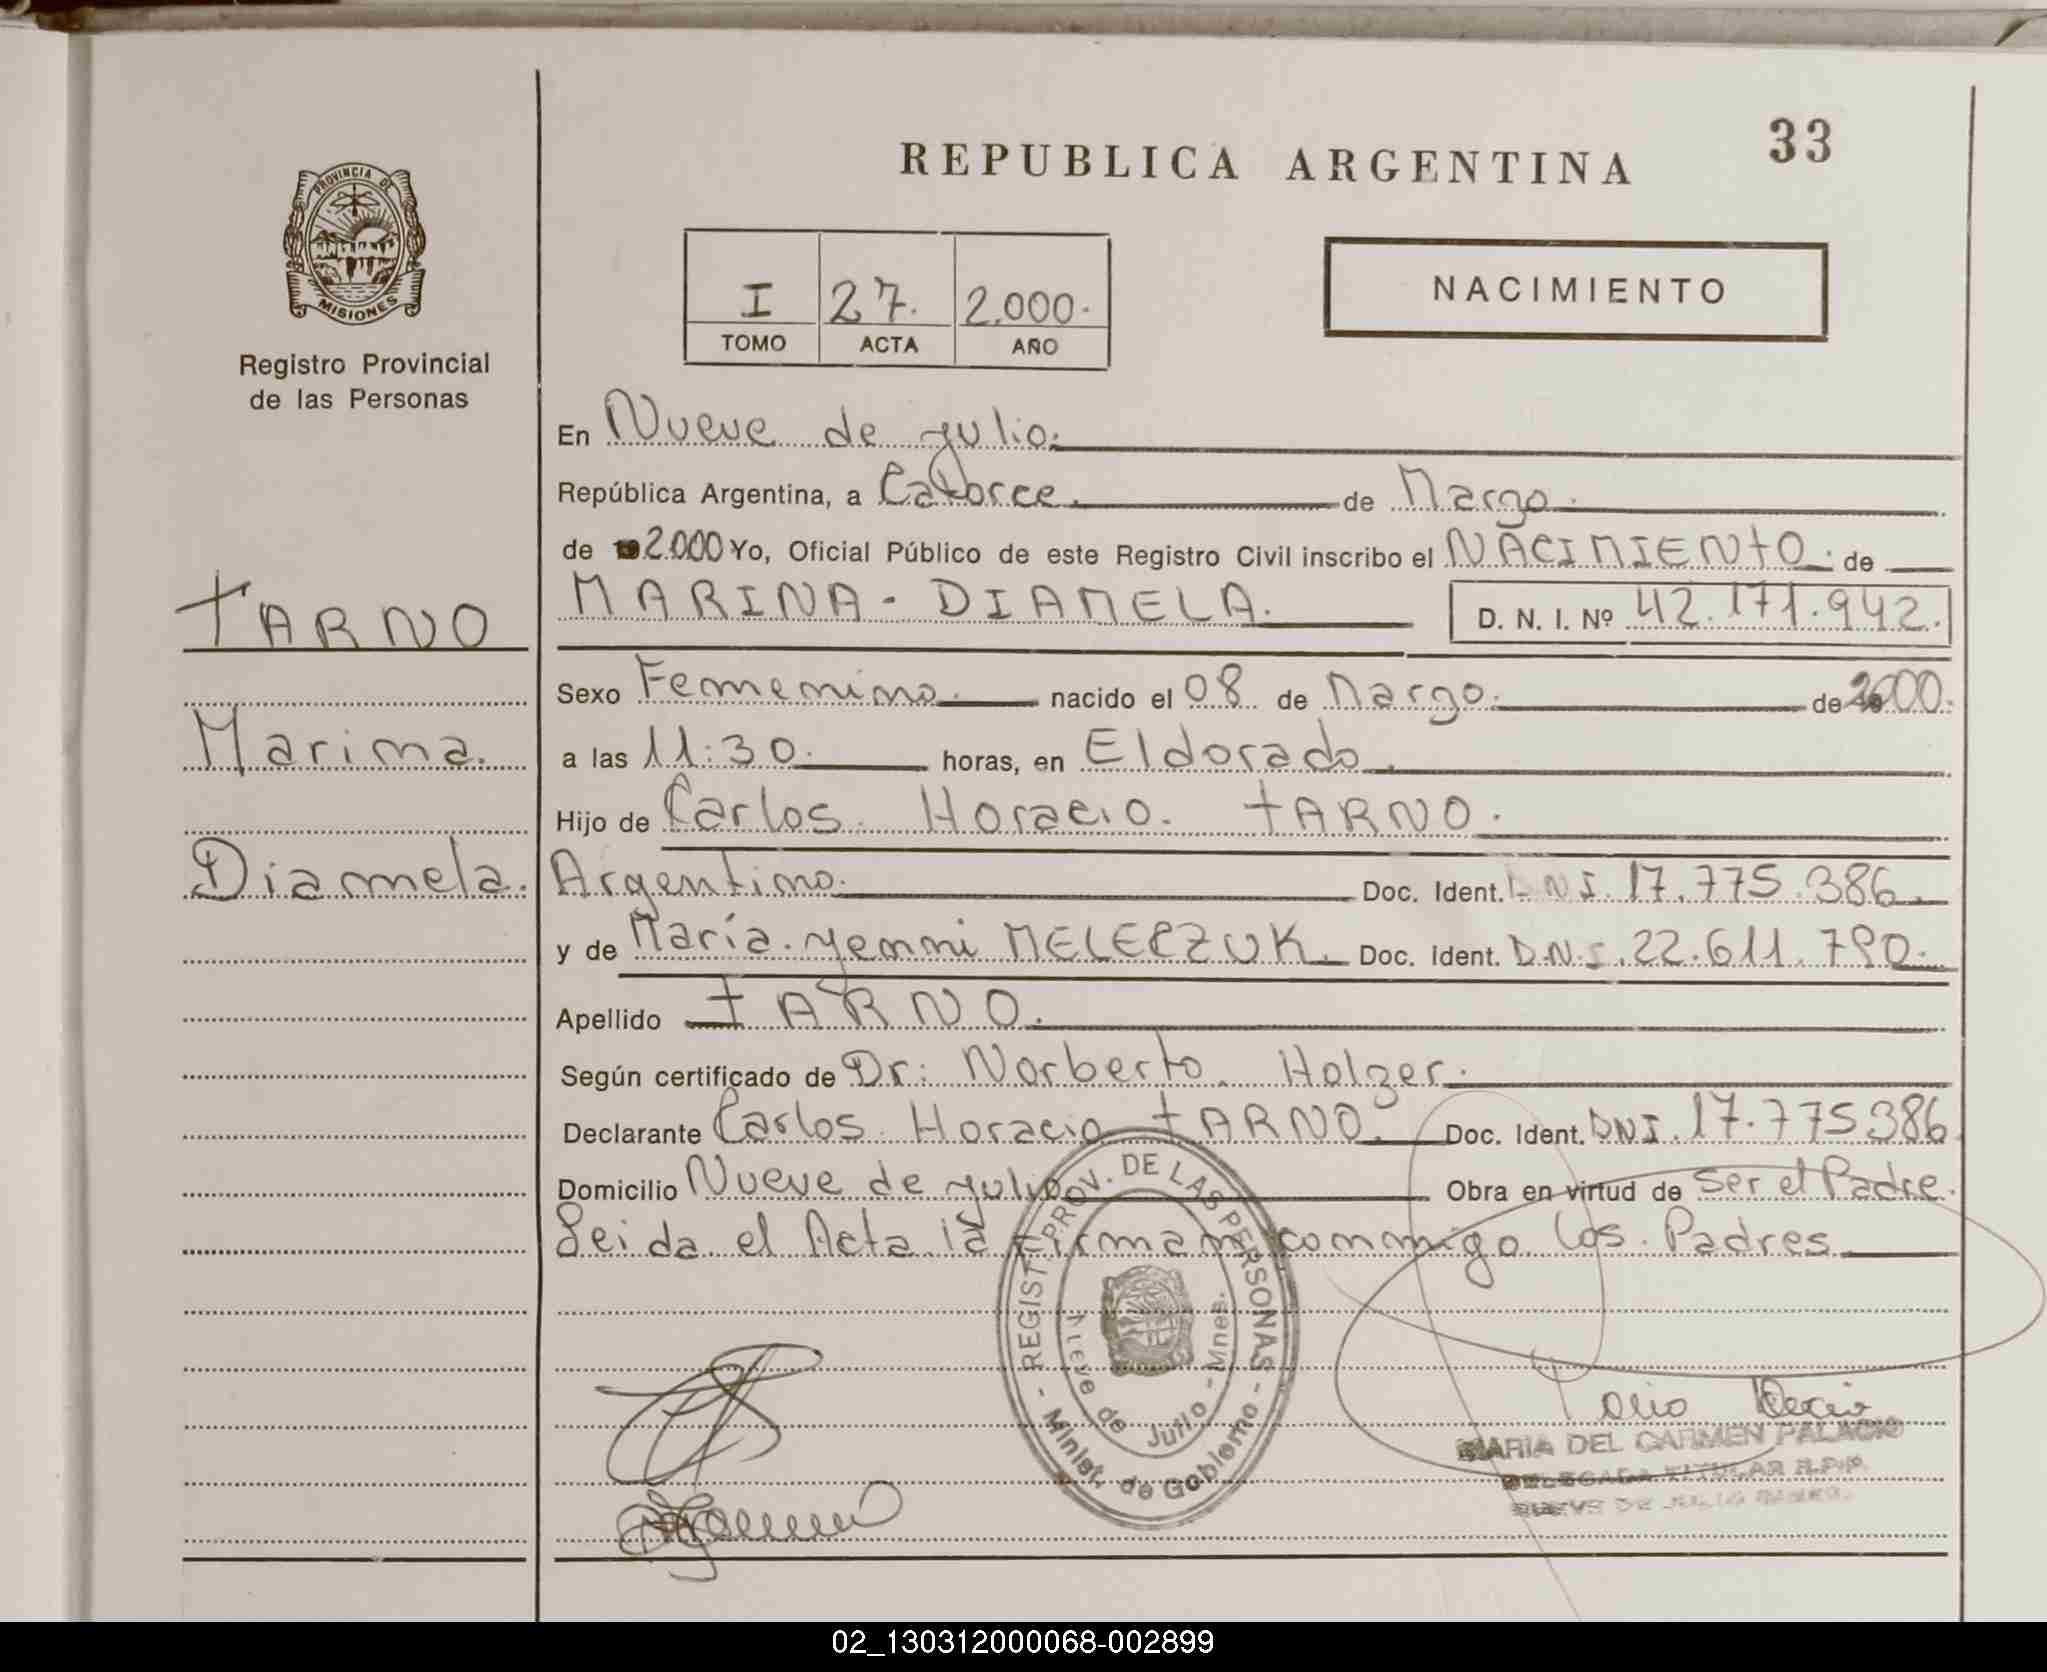 REPUBLICA ARGENTINA
33
PROVINCIA DE
MISIONES
Registro Provincial
de las Personas
I 27. 2.000.
TOMO ACTA AÑO
NACIMIENTO
En Nueve de Julio.
República Argentina, a Catorce. de Marzo.
de 2.000 Yo, Oficial Público de este Registro Civil inscribo el NACIMIENTO. de
TARNO
MARINA - DIAMELA. D. N. I. Nº 42.171.942.
Sexo Femenino. nacido el 08 de Marzo. de 2000.
Marina.
a las 11:30. horas, en Eldorado.
Hijo de Carlos. Horacio. TARNO.
Diamela.
Argentino. Doc. Ident. DNI. 17.775.386.
y de María. Yenni MELECZUK. Doc. Ident. D.N.I. 22.611.790.
Apellido TARNO.
Según certificado de Dr: Norberto. Holzer.
Declarante Carlos. Horacio TARNO. Doc. Ident. DNI. 17.775386
Domicilio Nueve de Julio Obra en virtud de ser el Padre.
Leida el Acta la firman conmigo los Padres
REGIST. PROV. DE LAS PERSONAS
Nueve de Julio - Mnes.
- Minist. de Gobierno -
MARIA DEL CARMEN PALACIO
DELEGADA TITULAR R.P.P.
NUEVE DE JULIO
02_130312000068-002899